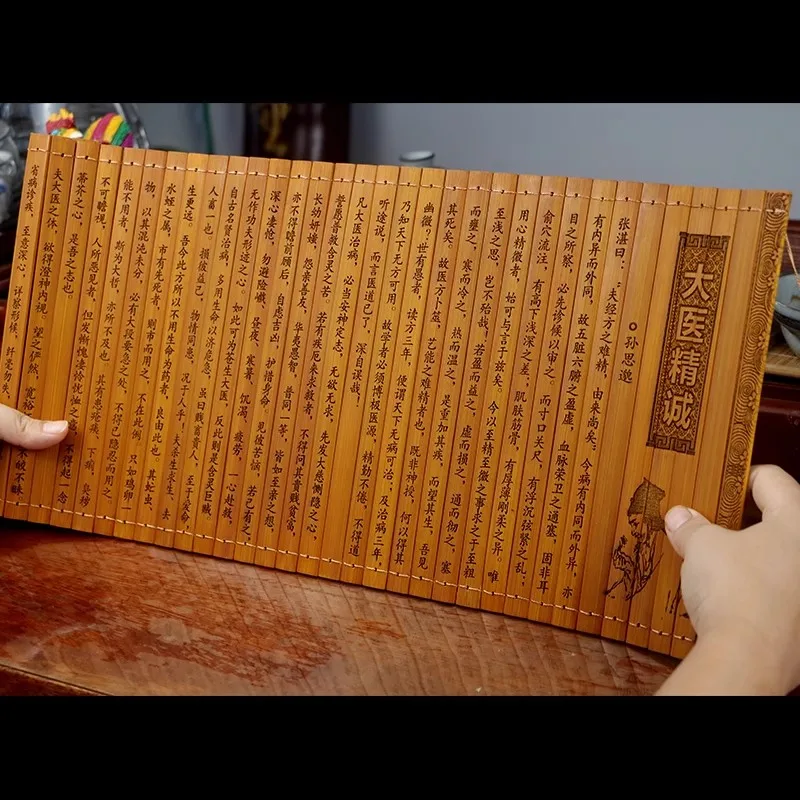 大医精诚
○孙思邈
张湛曰：“夫经方之难精，由来尚矣。今病有内同而外异，亦
有内异而外同，故五脏六腑之盈虚，血脉荣卫之通塞，固非耳
目之所察，必先诊候以审之。而寸口关尺，有浮沉弦紧之乱；
俞穴流注，有高下浅深之差；肌肤筋骨，有厚薄刚柔之异。唯
用心精微者，始可与言于兹矣。今以至精至微之事求之于至粗
至浅之思，岂不殆哉。若盈而益之，虚而损之，通而彻之，塞
而壅之，寒而冷之，热而温之，是重加其疾，而望其生，吾见
其死矣。故医方卜筮，艺能之难精者也，既非神授，何以得其
幽微？世有愚者，读方三年，便谓天下无病可治；及治病三年，
乃知天下无方可用。故学者必须博极医源，精勤不倦，不得道
听途说，而言医道已了，深自误哉！
凡大医治病，必当安神定志，无欲无求，先发大慈恻隐之心，
誓愿普救含灵之苦。若有疾厄来求救者，不得问其贵贱贫富，
长幼妍媸，怨亲善友，华夷愚智，普同一等，皆如至亲之想，
亦不得瞻前顾后，自虑吉凶，护惜身命。见彼苦恼，若己有之，
深心凄怆，勿避险巇、昼夜、寒暑、饥渴、疲劳，一心赴救，
无作功夫形迹之心。如此可为苍生大医，反此则是含灵巨贼。
自古名贤治病，多用生命以济危急，虽曰贱畜贵人，至于爱命，
人畜一也。损彼益己，物情同患，况于人乎！夫杀生求生，去
生更远。吾今此方所以不用生命为药者，良由此也。其虻虫、
水蛭之属，市有先死者，则市而用之，不在此例。只如鸡卵一
物，以其混沌未分，必有大段要急之处，不得已隐忍而用之。
能不用者，斯为大哲，亦所不及也。其有患疮痍、下痢，臭秽
不可瞻视，人所恶见者，但发惭愧凄怜忧恤之意，不得起一念
蒂芥之心，是吾之志也。
夫大医之体，欲得澄神内视，望之俨然，宽裕 不皎不昧
省病诊疾，至意深心，详察形候，纤毫勿失，